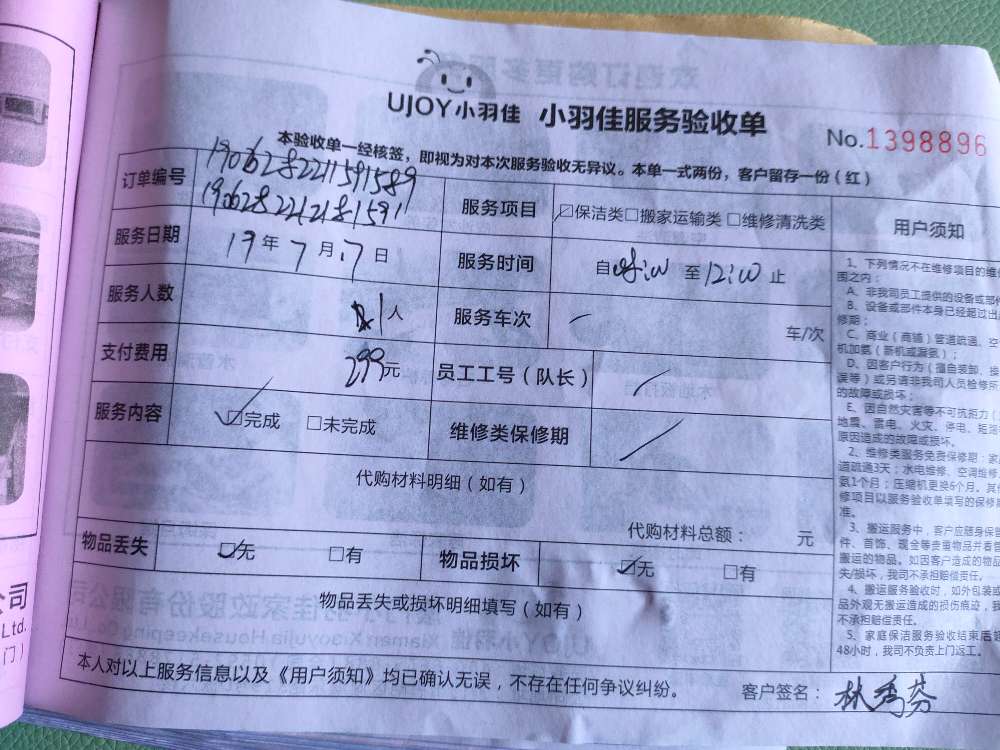 UJOY小羽佳 小羽佳服务验收单
No.1398896
本验收单一经核签，即视为对本次服务验收无异议。本单一式两份，客户留存一份（红）
订单编号 1906282211591589
1906282212181591
服务项目 ☑保洁类☐搬家运输类☐维修清洗类
用户须知
服务日期 19年7月17日
服务时间 自 至12:00止
服务人数 1人
服务车次 车/次
支付费用 299元
员工工号（队长）
服务内容 ☑完成 ☐未完成
维修类保修期
代购材料明细（如有）
代购材料总额： 元
物品丢失 ☑无 ☐有
物品损坏 ☑无 ☐有
物品丢失或损坏明细填写（如有）
本人对以上服务信息以及《用户须知》均已确认无误，不存在任何争议纠纷。
客户签名：林秀芬
1、下列情况不在维修项目的维
围之内：
A、非我司员工提供的设备或部
B、设备或部件本身已经超过出
修期；
C、商业（商铺）管道疏通、空
机加氨（新机或漏氨）；
D、因客户行为（擅自装卸、操
误等）或另请非我司人员检修所
的故障或损坏；
E、因自然灾害等不可抗拒力（
地震、雷电、火灾、停电、拒
原因造成的故障或损坏。
2、维修类服务免费保修期：家
道疏通3天；水电维修、空调维修
氨1个月；压缩机更换6个月。其
修项目以服务验收单填写的保修
准。
3、搬运服务中，客户应随身保管
件、首饰、现金等贵重物品并看管
搬运的物品。如因客户造成的物品
失/损坏，我司不承担赔偿责任。
4、搬运服务验收时，如外包装或
品外观无搬运造成的损伤痕迹，我
不承担赔偿责任。
5、家庭保洁服务验收结束后
48小时，我司不负责上门返工。
公司
Ltd.
门）